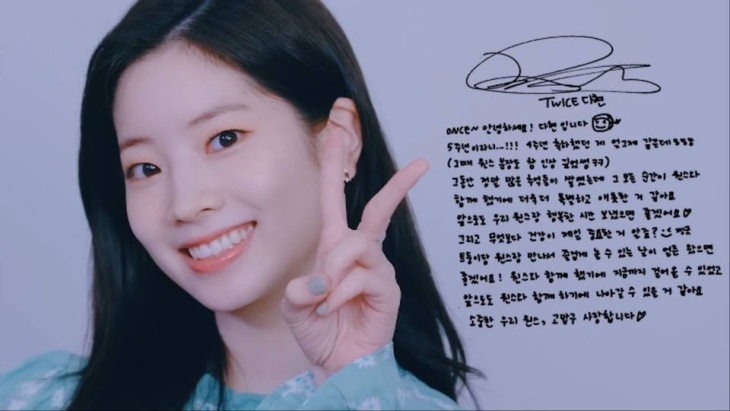 TWICE 다현
ONCE~ 안녕하세요! 다현입니다
5주년이라니...!!! 4주년 축하했던 게 엊그제 같은데ㅎㅎㅎ
(그때 원스 분장도 참 인상 깊었엉 ㅋㅋ)
그동안 정말 많은 추억들이 쌓였는데 그 모든 순간이 원스와
함께 했기에 더욱더 특별하고 애틋한 거 같아요
앞으로도 우리 원스랑 행복한 시간 보냈으면 좋겠어요♡
그리고 무엇보다 건강이 제일 중요한 거 알죠?
원스랑 만나서 즐겁게 놀 수 있는 날이 얼른 왔으면
좋겠어요! 원스와 함께 했기에 지금까지 걸어올 수 있었고
앞으로도 원스와 함께 하기에 나아갈 수 있을 거 같아요
소중한 우리 원스, 고맙구 사랑합니다♡